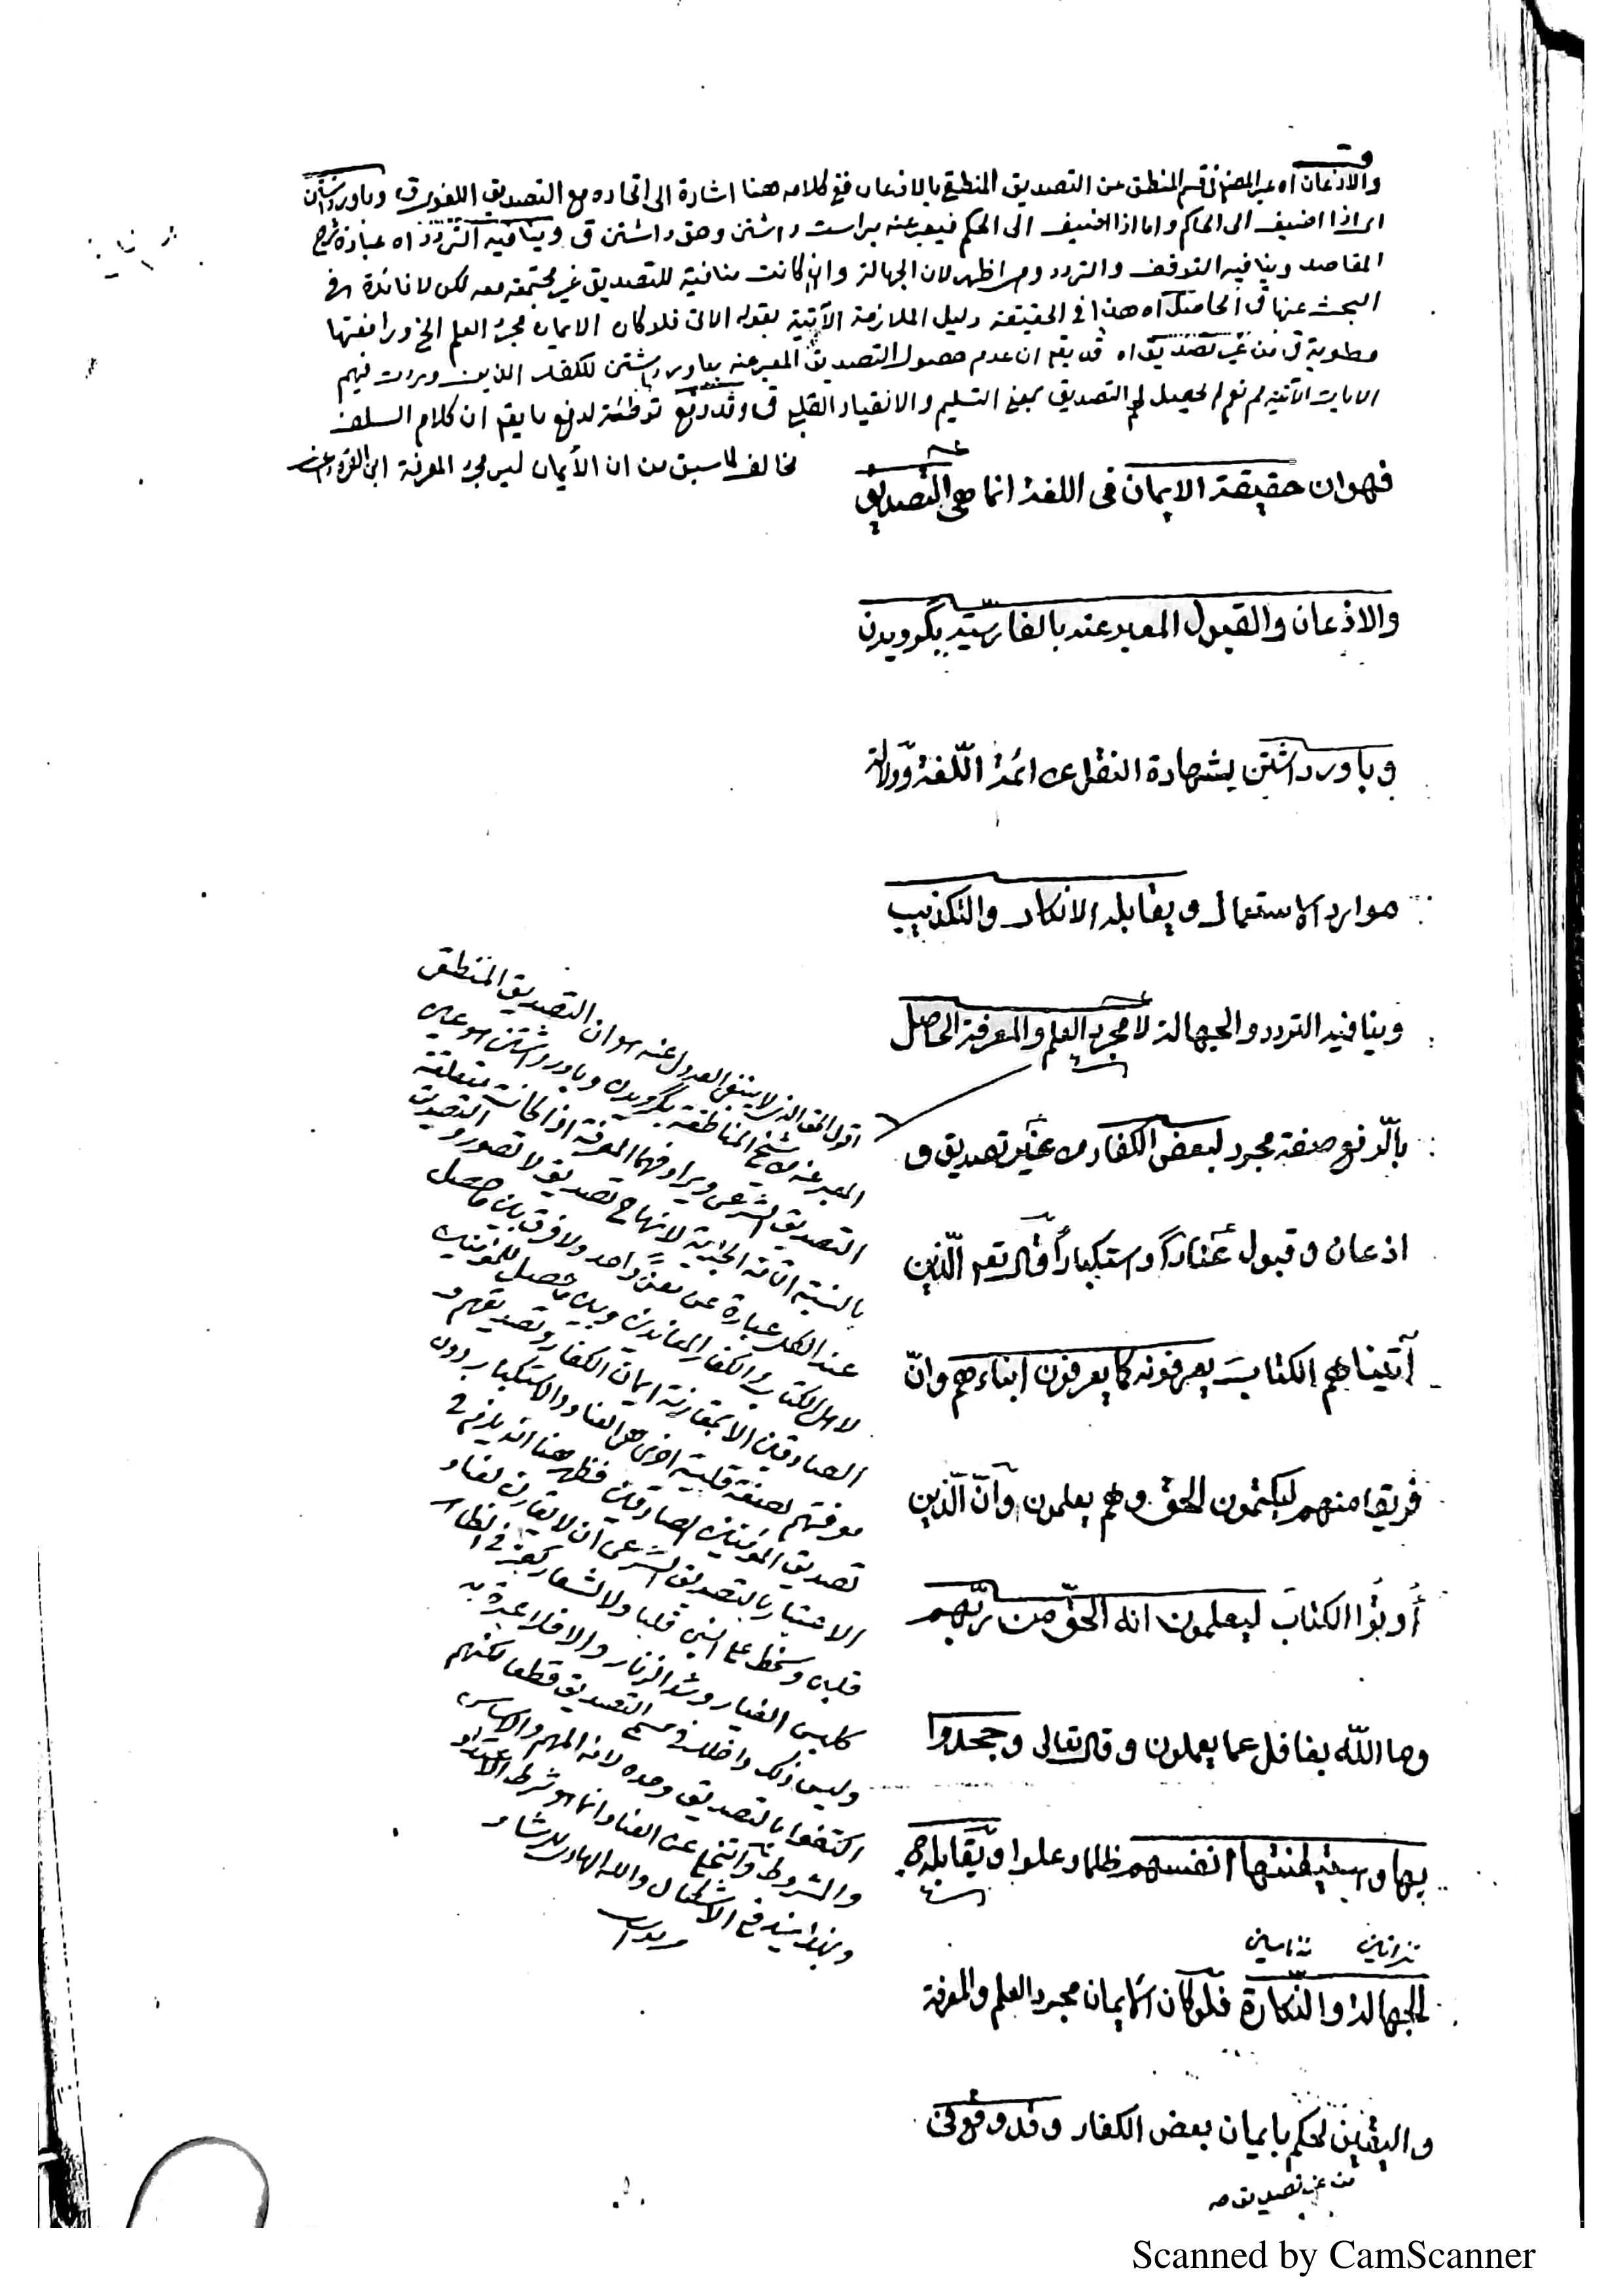 والاذعان اه عبر المصنف في قسم المنطق عن التصديق المنطقي بالاذعان ففي كلامه هنا اشارة الى اتحاده مع التصديق اللغوي ق وباور داشتن
اى اذا اضيف الى الحاكم واما اذا اضيف الى الحكم فيعبر عنه براست داشتن وحق داشتن ق وينافيه التردد اه عبارة شرح
المقاصد وينافيه التوقف والتردد وهو اظهر لان الجهالة وان كانت منافية للتصديق غير مجتمعة معه لكن لا فائدة في
البحث عنها ق الحاصل اه هذا في الحقيقة دليل الملازمة الآتية بقوله الاتى فلو كان الايمان مجرد العلم الخ ورافعتها
مطوية ق من غير تصديق اه قد يقع ان عدم حصول التصديق المعبر عنه بباور داشتن للكفار الذين وردت فيهم
الايات الآتية مم نعم لم يحصل لهم التصديق بمعنى التسليم والانقياد القلبي ق وقد وقع توطئة لدفع ما يقع ان كلام السلف
مخالف لما سبق من ان الأيمان ليس مجرد المعرفة ابن القره داغى
فهو ان حقيقة الايمان فى اللغة انما هى التصديق
والاذعان والقبول المعبر عنه بالفارسيّة بگرويدن
وباور داشتن بشهادة النقل عن ائمة اللّغة ودلالة
موارد الاستعمال ويقابله الانكار والتكذيب
وينافيه التردد والجهالة لا مجرد العلم والمعرفة الحاصل
بالرّفع صفة مجرد لبعض الكفار من غير تصديق و
اذعان وقبول عناداً واستكباراً قال تعه الّذين
آتيناهم الكتابَ يعرفونه كما يعرفون ابناءهم وانّ
فريقا منهم ليكتمون الحق وهم يعلمون وانّ الّذين
أُوتُوا الكتابَ ليعلمون انه الحقّ من ربّهم
وما اللّه بغافل عما يعملون وقال تعالى وجحدوا
بها واستيقنتها انفسهم ظلما وعلوا ويقابله
الجهالة والنّكارة فلو كان الايمان مجرد العلم والمعرفة
واليقين لحكم بايمان بعض الكفار وقد وقع فى
من غير تصديق صه
اقول الحق الذى لا ينبغى العدول عنه هو ان التصديق المنطقى
المعبر عنه من شيخ المناطقة بگرويدن وباور داشتن هو عين
التصديق الشرعى ويرادفهما المعرفة اذا كانت متعلقة
بالنسبة التامة الخبرية لانها ح تصديق لا تصور والتصديق
عند الكل عبارة عن معنى واحد ولا فرق بين ما حصل
لاهل الكتاب والكفار المعاندين وبين ما حصل للمؤمنين
الصادقين الا بمقارنة ايمان الكفار وتصديقهم و
معرفتهم لصفة قلبية اخرى هى العناد والاستكبار دون
تصديق المؤمنين الصادقين فظهر هنا انه يلزم فى
الاعتبار بالتصديق الشرعى ان لا يقارن لعناد
قلبى وسخط على النبى قلبا ولا لشعار كفر فى الظاهر
كلبس الغيار وشد الزنار والا فلا عبرة به
وليس ذلك داخلا فى مسمى التصديق قطعا لكنهم
اكتفوا بالتصديق وحده لانه المهم والاساس
والشروط والتخلى عن العناد انما هو شرط الاعتداد
وبهذا يندفع الاشكال والله الهادى للرشاد
Scanned by CamScanner